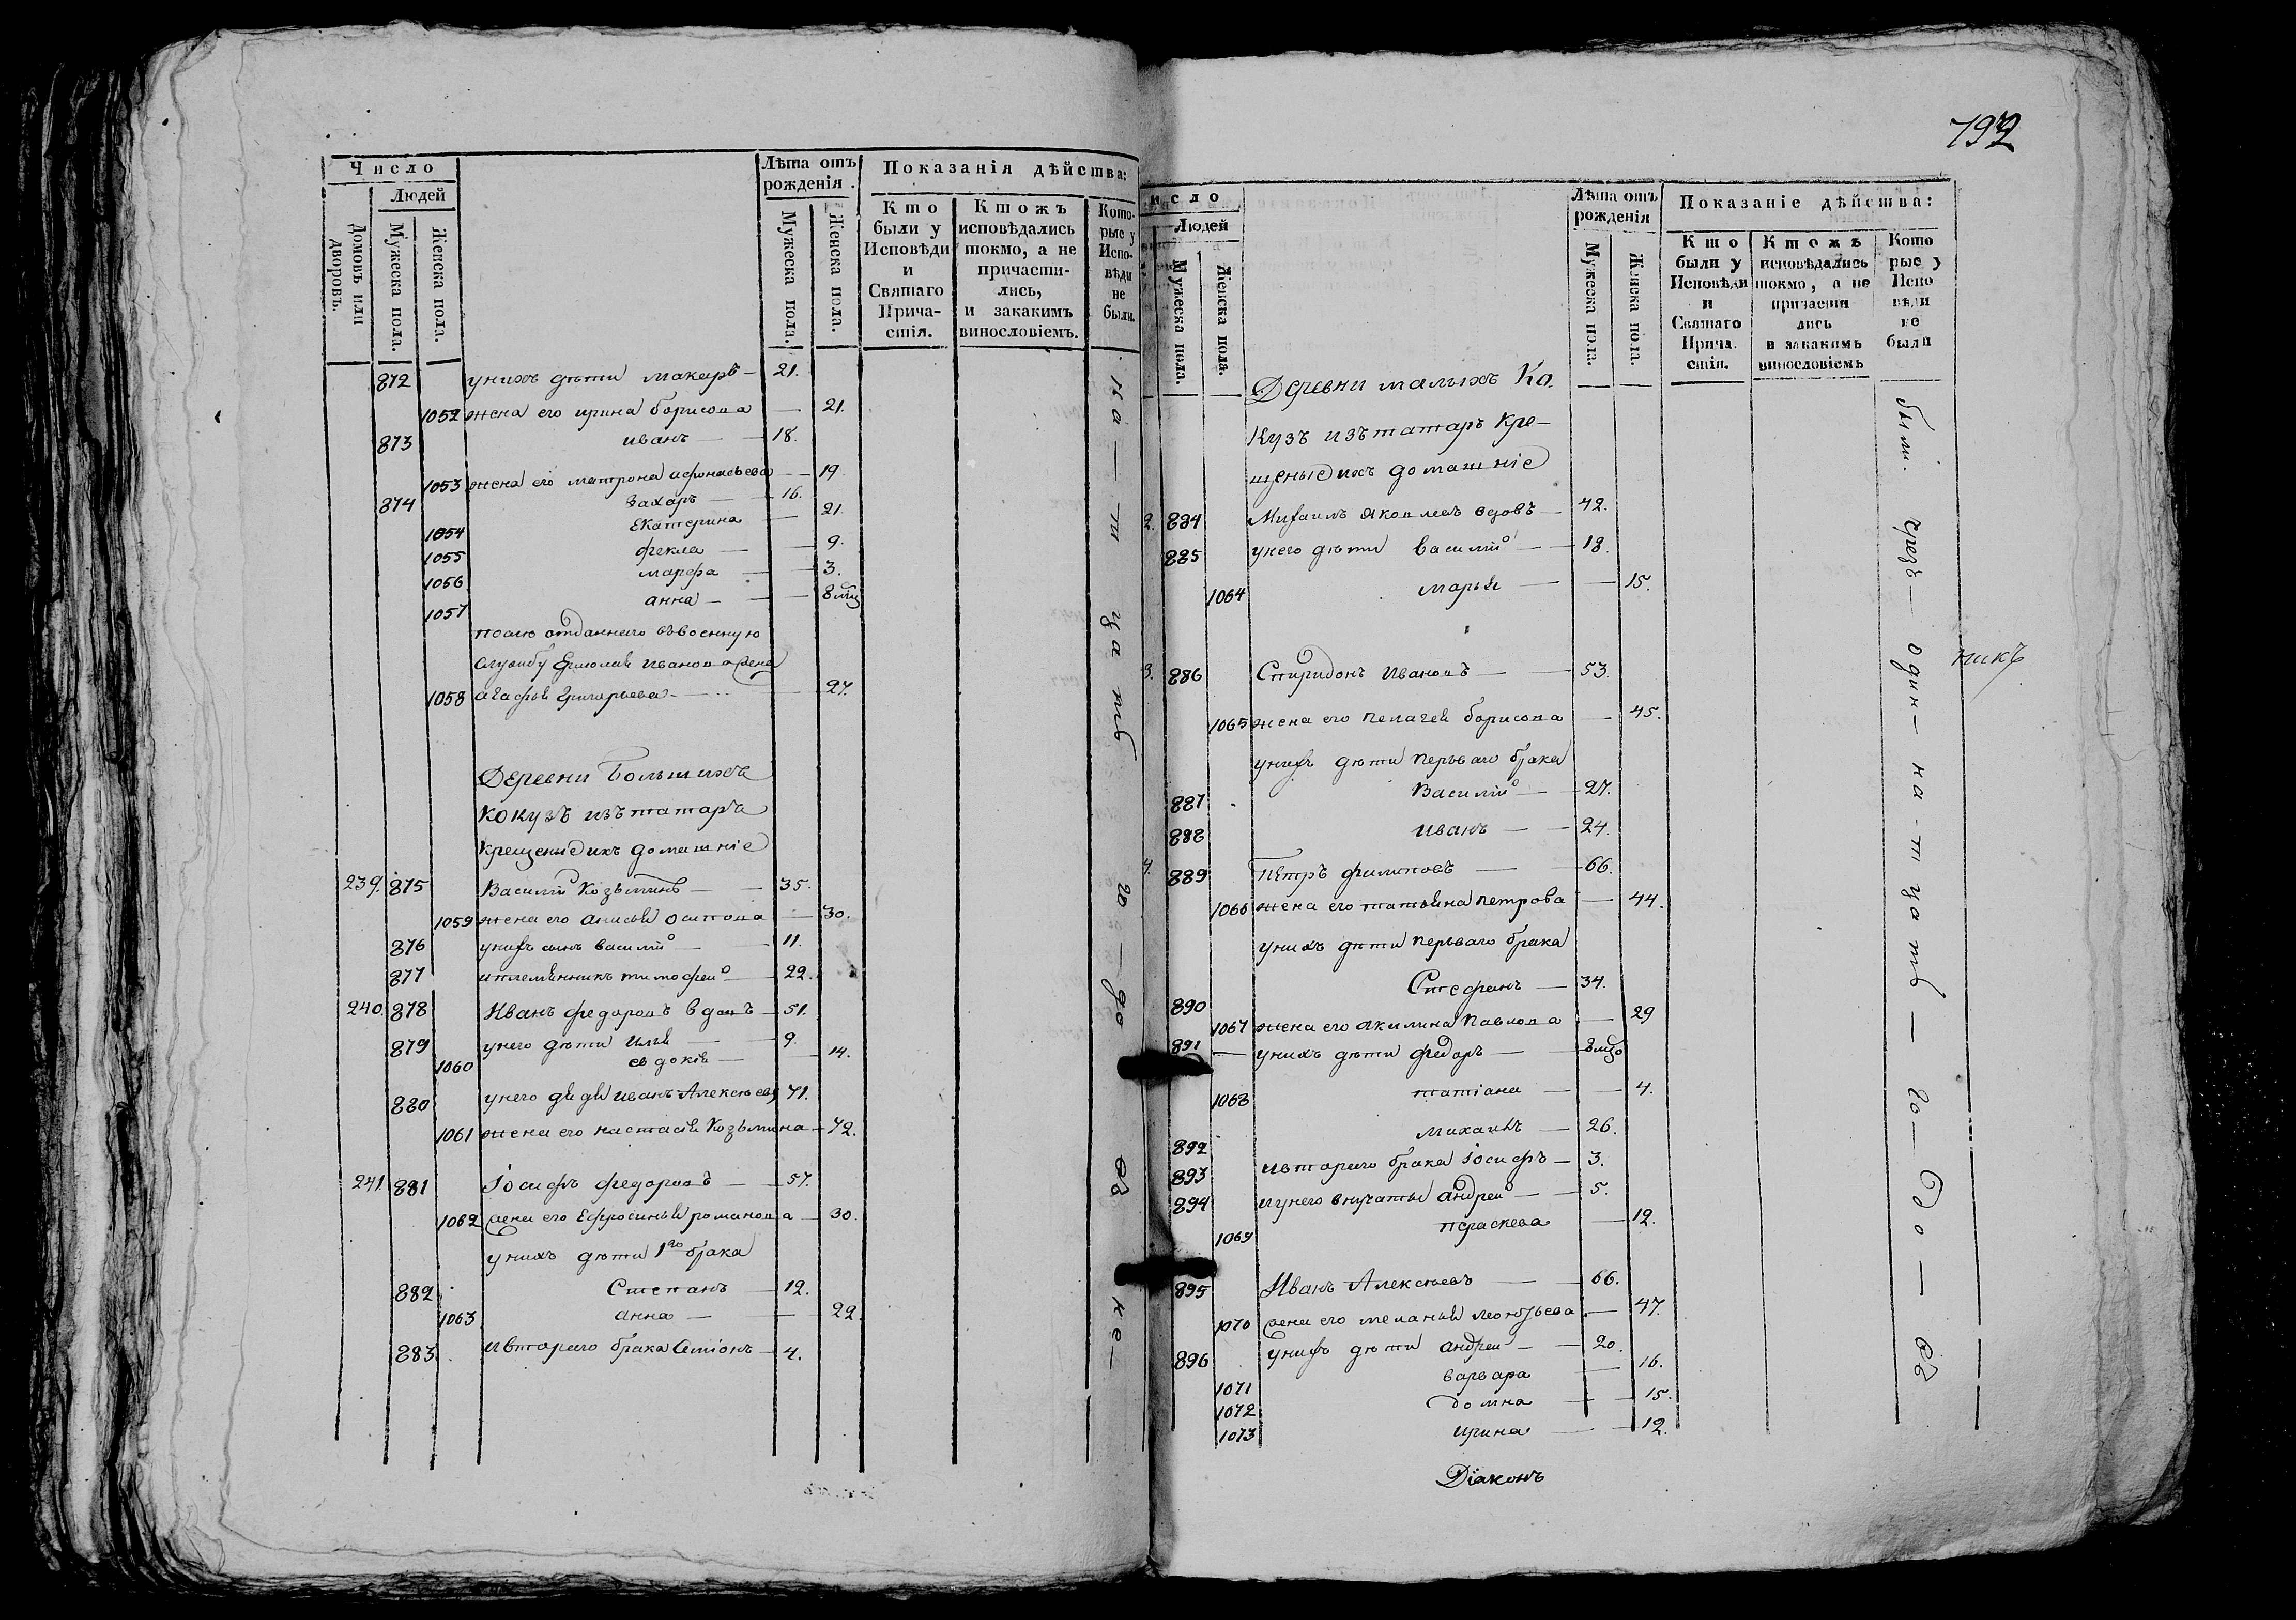 Число
Людей
Домовъ или дворовъ.
Мужеска пола.
Женска пола.
Лѣта отъ рожденія.
Мужеска пола.
Женска пола.
Показанія дѣйства:
Кто были у Исповѣди и Святаго Прича-стія.
Ктожъ исповѣдались токмо, а не причасти-лись, и закакимъ винословіемъ.
Кото-рые у Испо-вѣди не были.
872 унихъ дѣти макаръ — 21.
1052 жена его ирина борисова — 21.
873 иванъ — 18.
1053 жена его матрона афонасьева — 19.
874 Захаръ — 16.
1054 Екатерина — 21.
1055 фекла — 9.
1056 марфа — 3.
1057 анна — 8 мц
посло отданнаго въвоенную
службу Ермолая иванова жена
1058 агафья Григорьева — 27.
Деревни Большихъ
Кокузъ изътатаръ
крещеные ихъ домашніе
239. 875 Василій Козьминъ — 35.
1059 жена его анисья осипова — 30.
876 унихъ сынъ василій — 11.
877 иплемянникъ тимофей — 22.
240. 878 Иванъ федоровъ вдовъ — 51.
879 унего дѣти илья — 9.
1060 евдокія — 14.
880 унего дядя иванъ Алексѣевъ 71.
1061 жена его настасія Козьмина — 72.
241. 881 Іосифъ федоровъ — 57.
1062 жена его Ефросинья романова — 30.
унихъ дѣти 1го брака
882 Степанъ — 12.
1063 анна — 22.
883. ивтораго брака Симіонъ — 4.
на — т ца ть 20 — до въ не —
792
исло
Людей
Мужеска пола.
Женска пола.
Лѣта отъ рожденія
Мужеска пола.
Женска пола.
Показаніе дѣйства:
Кто были у Исповѣди и Святаго Прича-стія.
Ктожъ исповѣдались токмо, а не причасти лись и закакимъ винословіемъ
Кото рые у Испо вѣди не были
Деревни малыхъ Ко-
Кузъ изътатаръ Кре-
щеные ихъ домашніе
2. 884 Михаилъ Яковлевъ вдовъ — 42.
885 унего дѣти василій — 18.
1064 марья — 15.
3. 886 Спиридонъ Ивановъ — 53.
1065 жена его пелагея борисова — 45.
унихъ дѣти перваго брака
887 Василій — 27.
888 иванъ — 24.
4. 889 Петръ филиповъ — 66.
1066 жена его татьяна петрова — 44.
унихъ дѣти перваго брака
890 Стефанъ — 34.
1067 жена его акилина Павлова — 29
891 — унихъ дѣти федоръ — 8 мцо
1068 татіана — 4.
892 михаилъ — 26.
893 ивтораго брака Іосифъ — 3.
894 иунего внучаты андрей — 5.
1069 параскева — 12.
895 Иванъ Алексѣевъ — 66.
1070 жена его меланья леонтьева — 47.
896 унихъ дѣти андрей — 20.
1071 варвара — 16.
1072 домна — 15.
1073 ирина — 12.
Діаконъ
были. чрезъ — один — на - т ца ть — 20 — до — въ
никъ